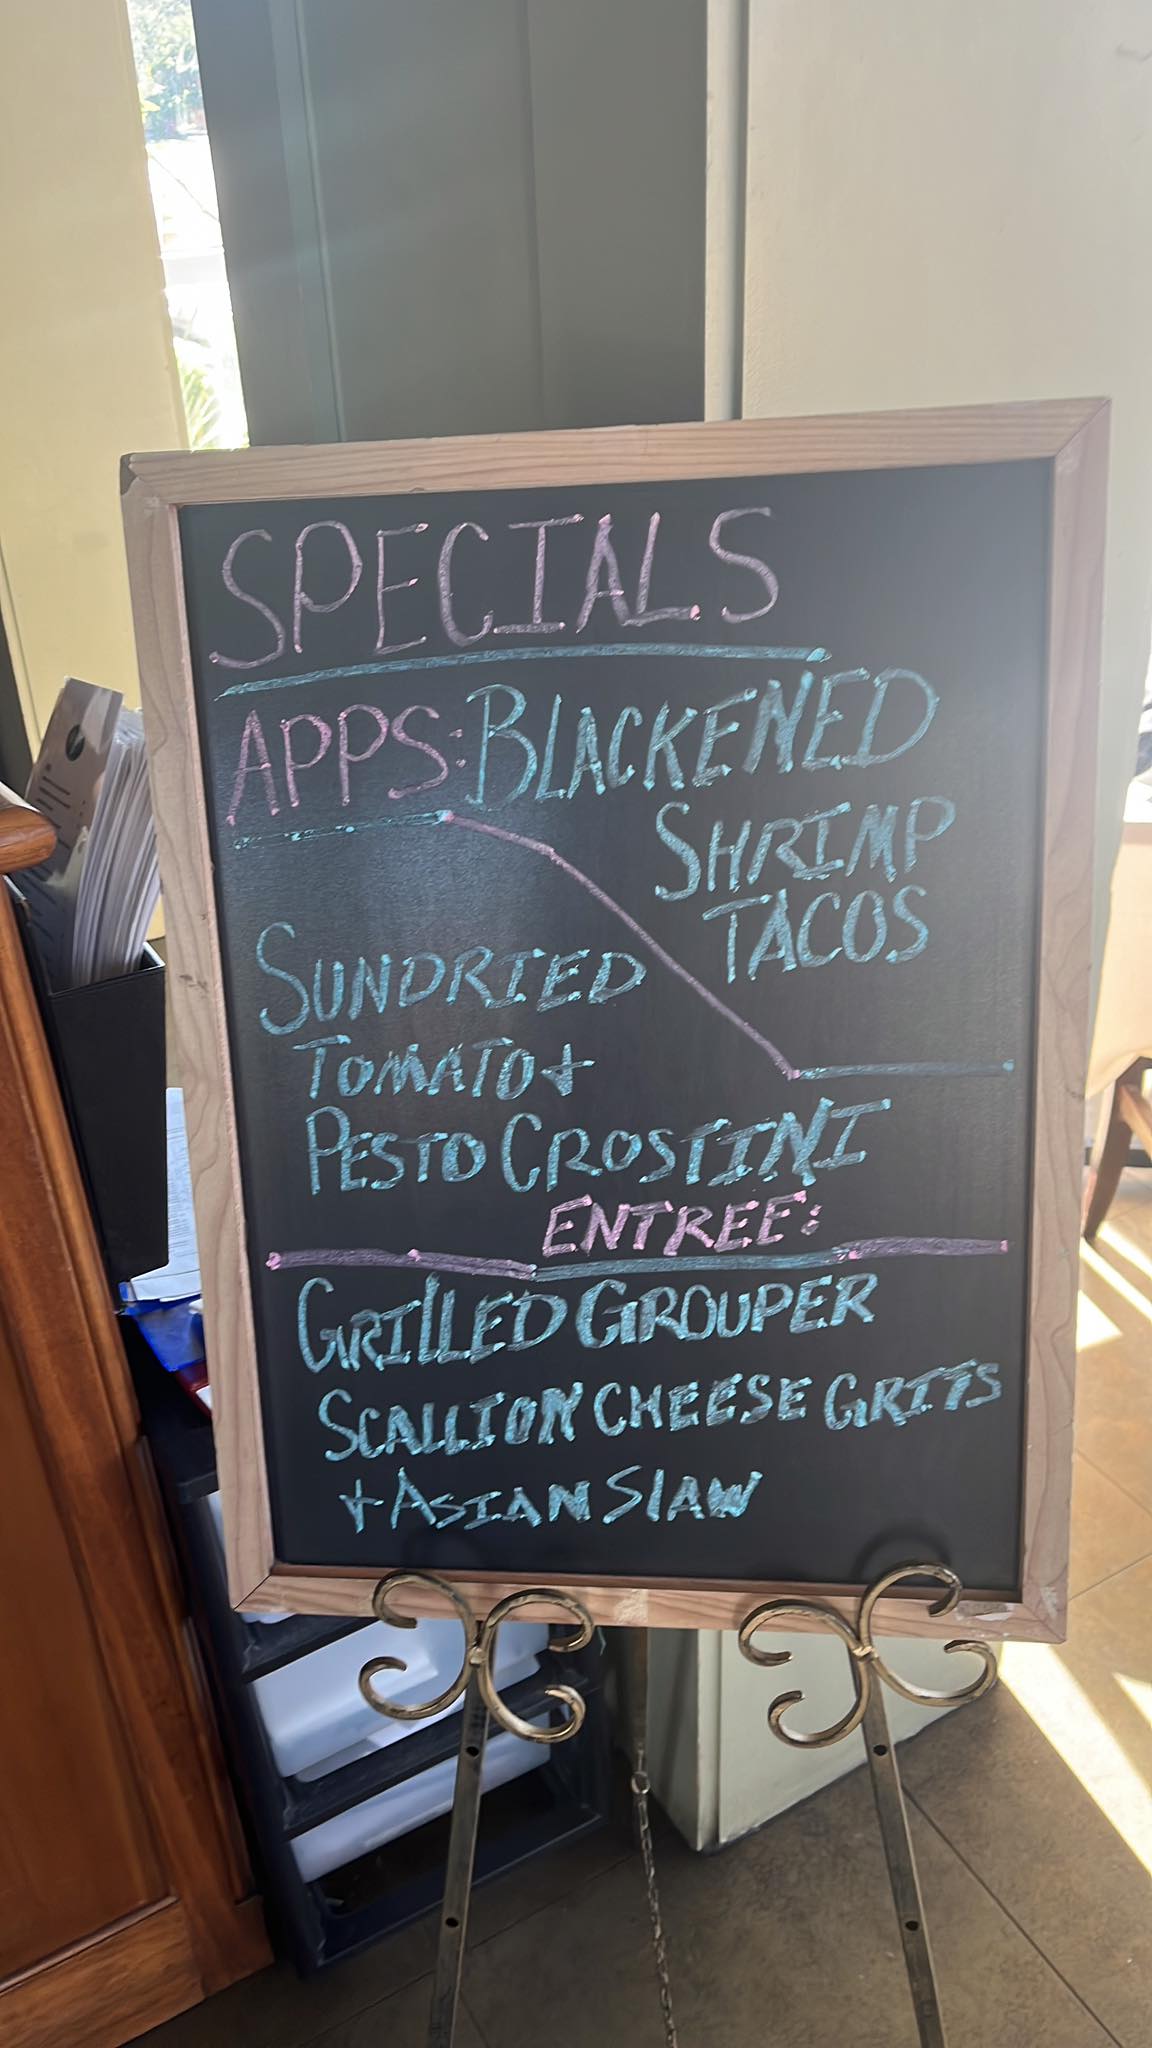 SPECIALS
APPS: BLACKENED
SHRIMP
TACOS
SUNDRIED
TOMATO +
PESTO CROSTINI
ENTREE:
GRILLED GROUPER
SCALLION CHEESE GRITS
+ ASIAN SLAW